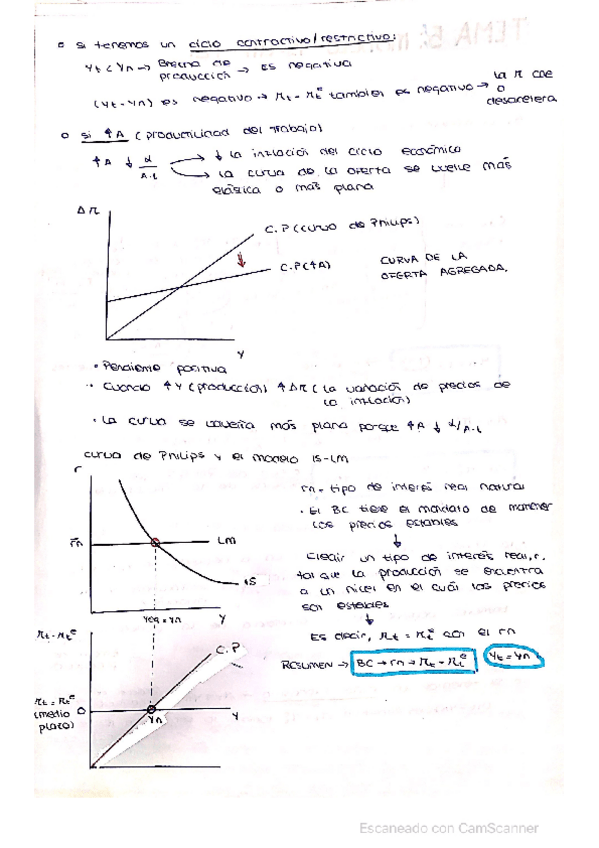 ▫ si tenemos un ciclo contractivo/restrictivo:
Yt < Yn → Brecha de producción → Es negativa
(Yt - Yn) es negativo → πt - πtᵉ también es negativo → la π cae o desacelera
o si ↑A (productividad del trabajo)
↑A ↓ α/A·L → ↓ la inflación del ciclo económico
→ la curva de la oferta se vuelve más elástica o más plana
Δπ
C.P (curva de Philips)
C.P (↑A)
CURVA DE LA OFERTA AGREGADA.
Y
• Pendiente positiva
• Cuando ↑Y (producción) ↑Δπ (la variación de precios de la inflación)
• La curva se vuelve más plana porque ↑A ↓ α/A·L
curva de Philips y el modelo IS-LM
r
r̄n
LM
IS
Yeq = Yn
Y
rn = tipo de interés real natural
• El BC tiene el mandato de mantener los precios estables
↓
Elegir un tipo de interés real, r, tal que la producción se encuentra a un nivel en el cuál los precios son estables
↓
Es decir, πt = πtᵉ con el rn
RESUMEN → BC → rn → πt = πtᵉ Yt = Yn
πt - πtᵉ
C.P
πt = πtᵉ (medio plazo)
0
Yn
Y
Escaneado con CamScanner